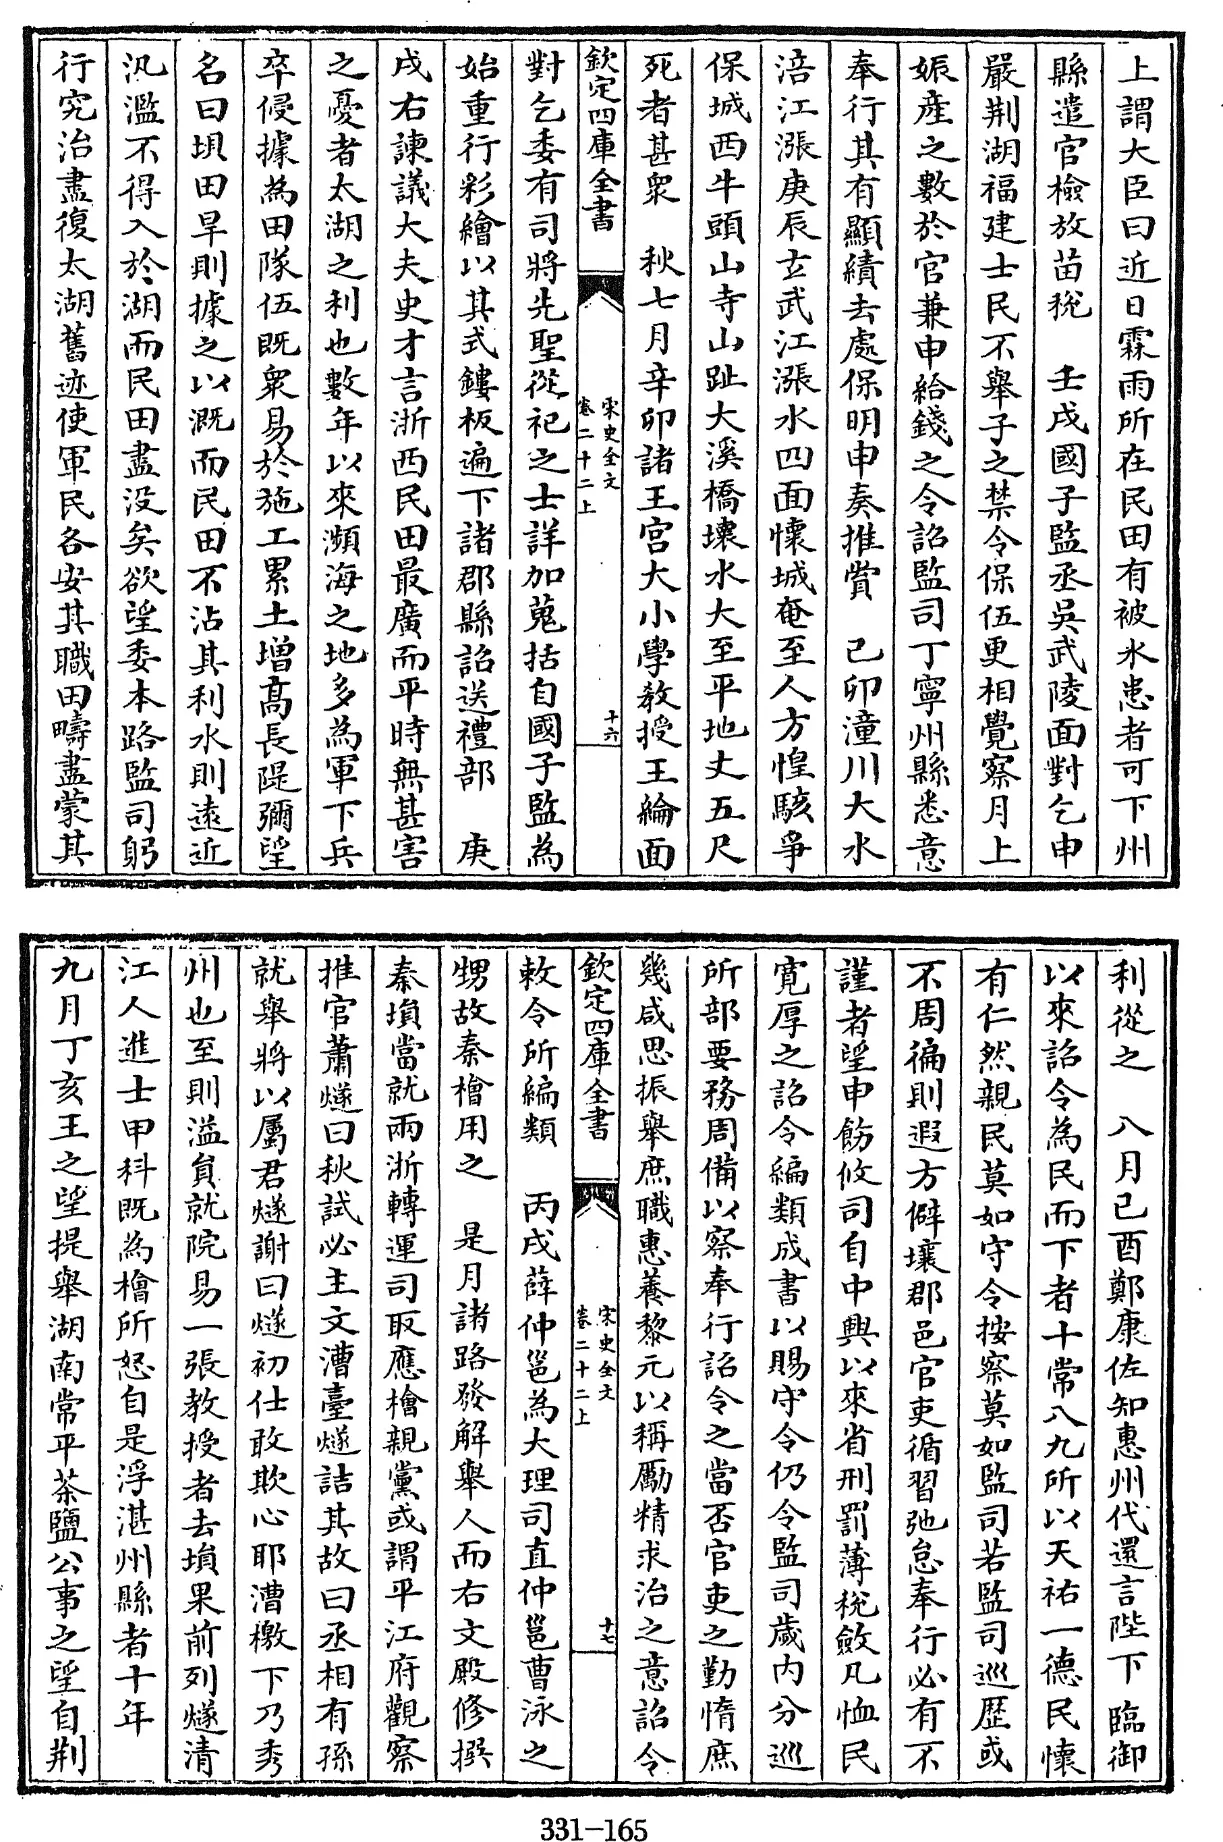 上謂大臣曰近日霖雨所在民田有被水患者可下州
縣遣官檢放苗稅　壬戌國子監丞吳武陵面對乞申
嚴荆湖福建士民不舉子之禁令保伍更相覺察月上
娠産之數於官兼申給錢之令詔監司丁寧州縣悉意
奉行其有顯績去處保明申奏推賞　己卯潼川大水
涪江漲庚辰玄武江漲水四面懷城奄至人方惶駭爭
保城西牛頭山寺山趾大溪橋壞水大至平地丈五尺
死者甚衆　秋七月辛卯諸王宮大小學教授王綸面
欽定四庫全書
宋史全文
卷二十二上
十六
對乞委有司將先聖從祀之士詳加蒐括自國子監為
始重行彩繪以其式鏤板遍下諸郡縣詔送禮部　庚
戌右諫議大夫史才言浙西民田最廣而平時無甚害
之憂者太湖之利也數年以來瀕海之地多為軍下兵
卒侵據為田隊伍既衆易於施工累土增髙長隄彌望
名曰垻田旱則據之以溉而民田不沾其利水則逺近
汎濫不得入於湖而民田盡没矣欲望委本路監司躬
行究治盡復太湖舊迹使軍民各安其職田疇盡蒙其
利從之　八月己酉鄭康佐知惠州代還言陛下臨御
以來詔令為民而下者十常八九所以天祐一德民懷
有仁然親民莫如守令按察莫如監司若監司巡歴或
不周徧則遐方僻壤郡邑官吏循習弛怠奉行必有不
謹者望申飭攸司自中興以來省刑罰薄稅斂凡恤民
寛厚之詔令編類成書以賜守令仍令監司歲内分巡
所部要務周備以察奉行詔令之當否官吏之勤惰庶
幾咸思振舉庶職惠養黎元以稱勵精求治之意詔令
欽定四庫全書
宋史全文
卷二十二上
十七
敕令所編類　丙戌薛仲邕為大理司直仲邕曹泳之
甥故秦檜用之　是月諸路發解舉人而右文殿修撰
秦塤當就兩浙轉運司取應檜親黨或謂平江府觀察
推官蕭燧曰秋試必主文漕臺燧詰其故曰丞相有孫
就舉將以屬君燧謝曰燧初仕敢欺心耶漕檄下乃秀
州也至則溢員就院易一張教授者去塤果前列燧清
江人進士甲科既為檜所怒自是浮湛州縣者十年
九月丁亥王之望提舉湖南常平茶鹽公事之望自荆
331-165